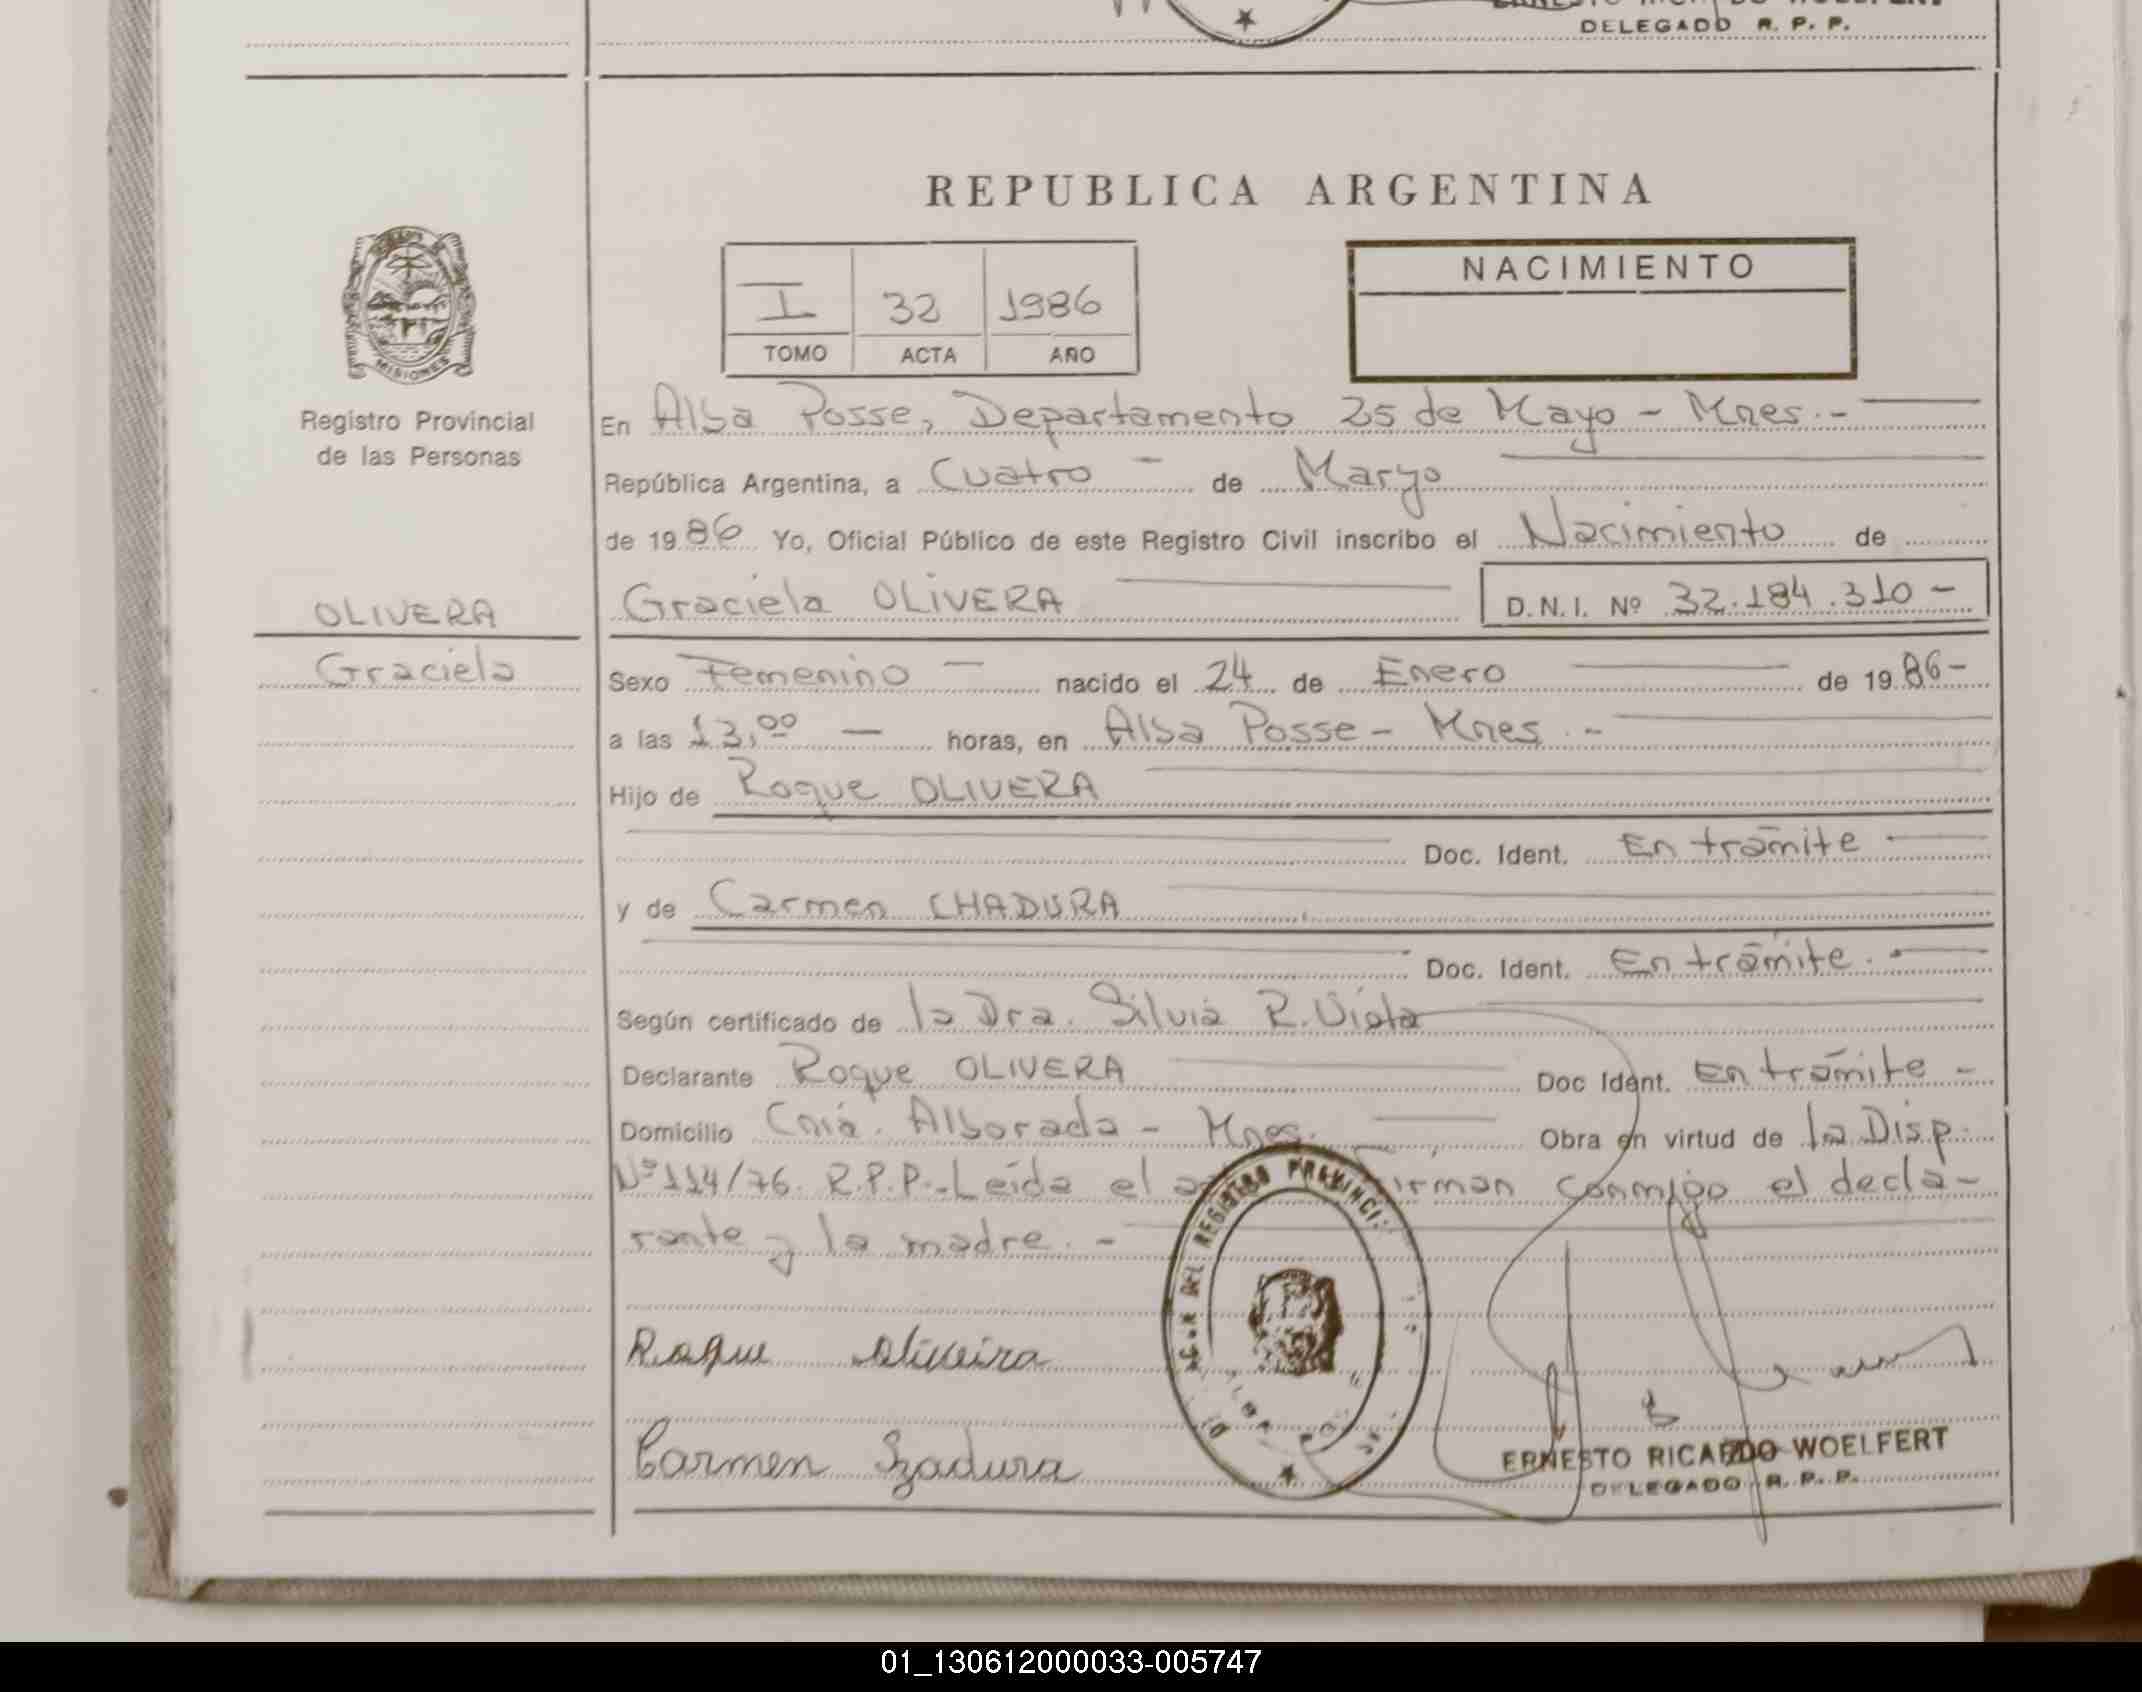 DELEGADO R. P. P.
REPUBLICA ARGENTINA
NACIMIENTO
I 32 1986
TOMO ACTA AÑO
MISIONES
Registro Provincial
de las Personas
OLIVERA
Graciela
En Alba Posse, Departamento 25 de Mayo - Mnes.-
República Argentina, a Cuatro - de Marzo
de 1986 Yo, Oficial Público de este Registro Civil inscribo el Nacimiento de
Graciela OLIVERA D.N.I. Nº 32.184.310-
Sexo Femenino - nacido el 24 de Enero de 1986-
a las 13,00 - horas, en Alba Posse - Mnes.-
Hijo de Roque OLIVERA
Doc. Ident. En trámite
y de Carmen CHADURA
Doc. Ident. En trámite.-
Según certificado de la Dra. Silvia R.
Declarante Roque OLIVERA Doc Ident. En trámite -
Domicilio Cnia. Alborada - Mnes. Obra en virtud de la Disp.
Nº 114/76. R.P.P.-Leída el firman conmigo el decla-
rante y la madre.-
Roque Oliveira
Carmen Szadura
DEL REGISTRO PROVINCI
ERNESTO RICARDO WOELFERT
DELEGADO R. P. P.
01_130612000033-005747